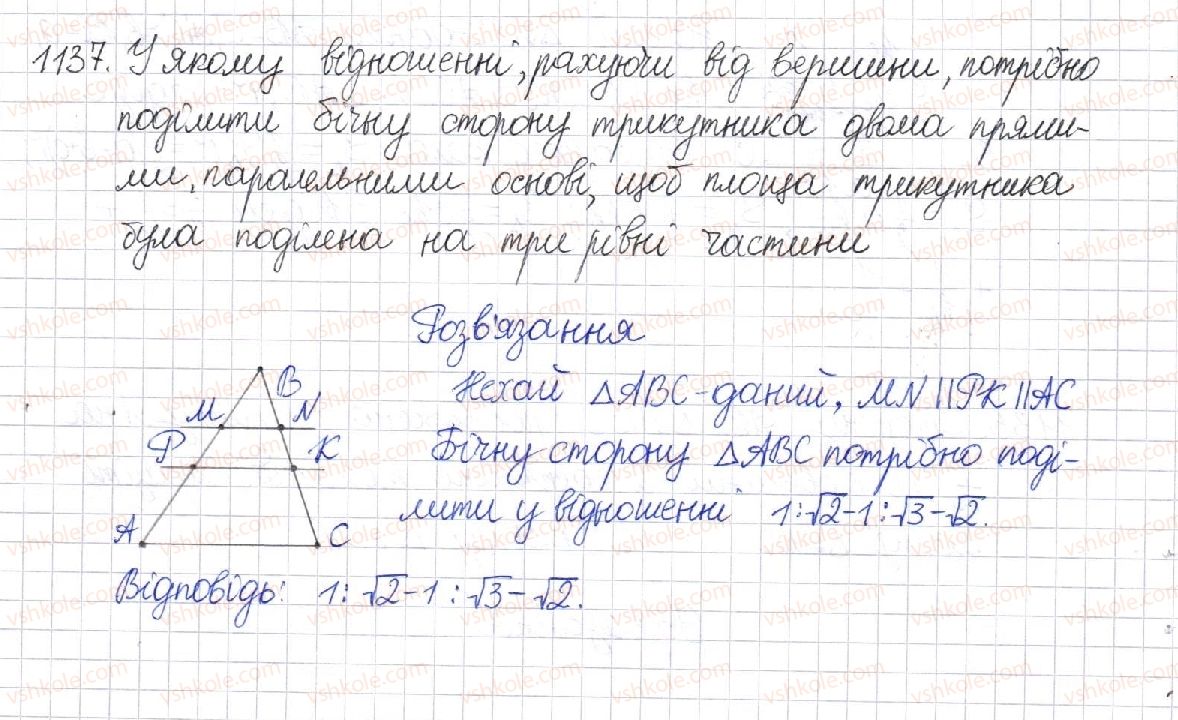 1137. У якому відношенні, рахуючи від вершини, потрібно
поділити бічну сторону трикутника двома прями-
ми, паралельними основі, щоб площа трикутника
була поділена на три рівні частини
Розв'язання
Нехай △ABC - даний, MN || PK || AC
Бічну сторону △ABC потрібно поді-
лити у відношенні 1:√2-1:√3-√2.
B
M N
P K
A C
Відповідь: 1:√2-1:√3-√2.
vshkole.com